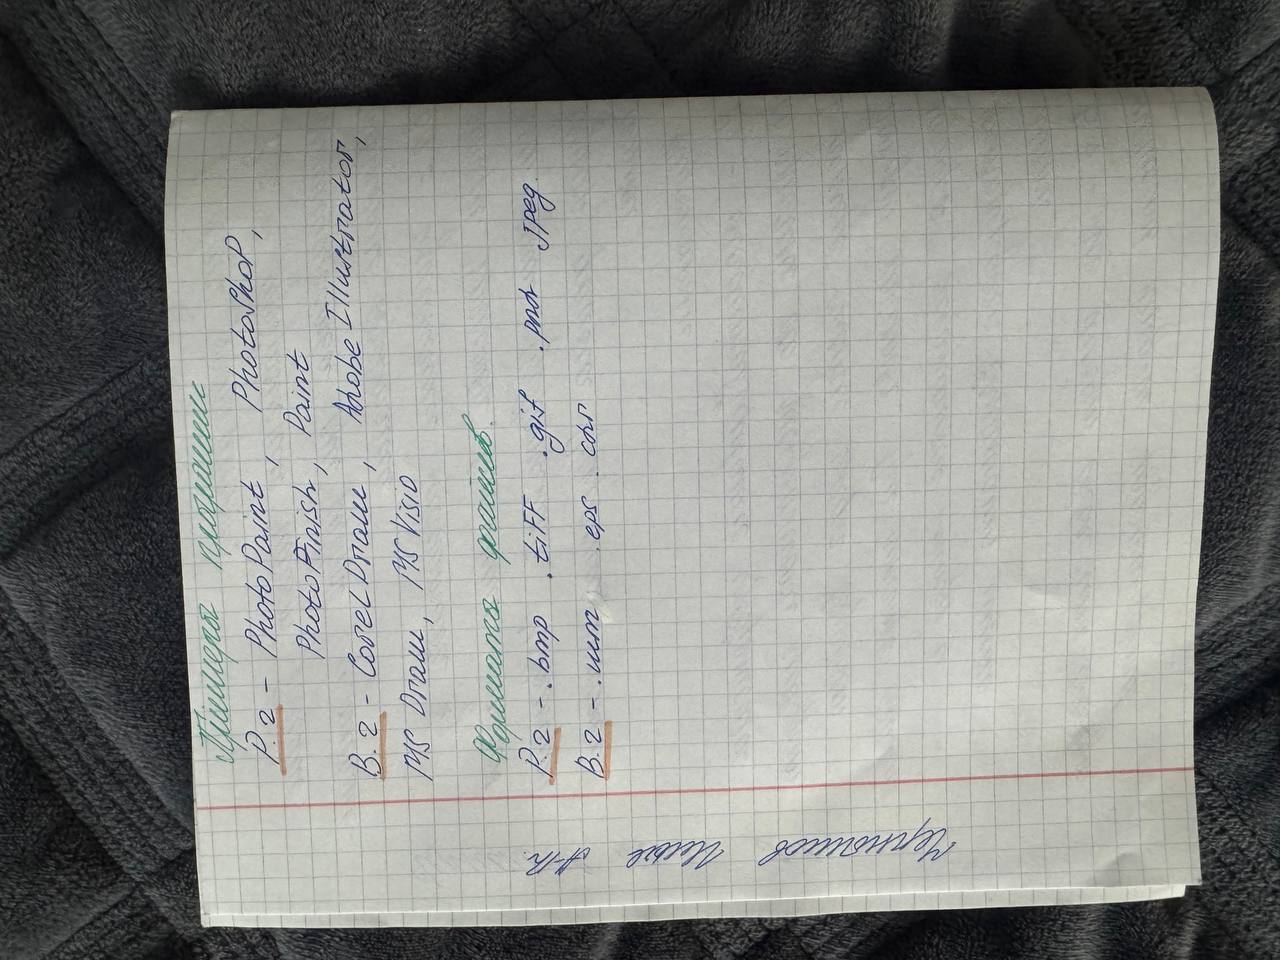 Примеры программ
Р.г - PhotoPaint, PhotoShop,
PhotoFinish, Paint
В.г - CorelDraw, Adobe Illustrator,
MS Draw, MS Visio
Форматы файлов.
Р.г - .bmp .tiff .gif .png Jpeg.
В.г - .wm .eps .cdr
Чернышов Илья